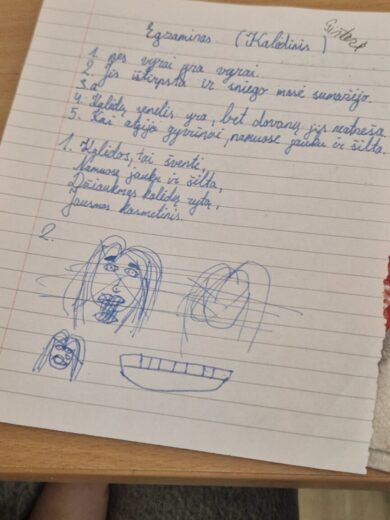 Egzaminas (Kalėdinis)
1. nes vyrai yra vyrai.
2. Jis ištirpsta ir sniego masė sumažėjo.
3. a
4. Kalėdų senelis yra, bet dovanų jis neatneša.
5. Kai atėjo gyvūnai, namuose jauku ir šilta.
1. Kalėdos, tai šventi,
Namuose jauku ir šilta,
Džiaukmas kalėdų rytą,
Jausmas kosmetinis.
2.